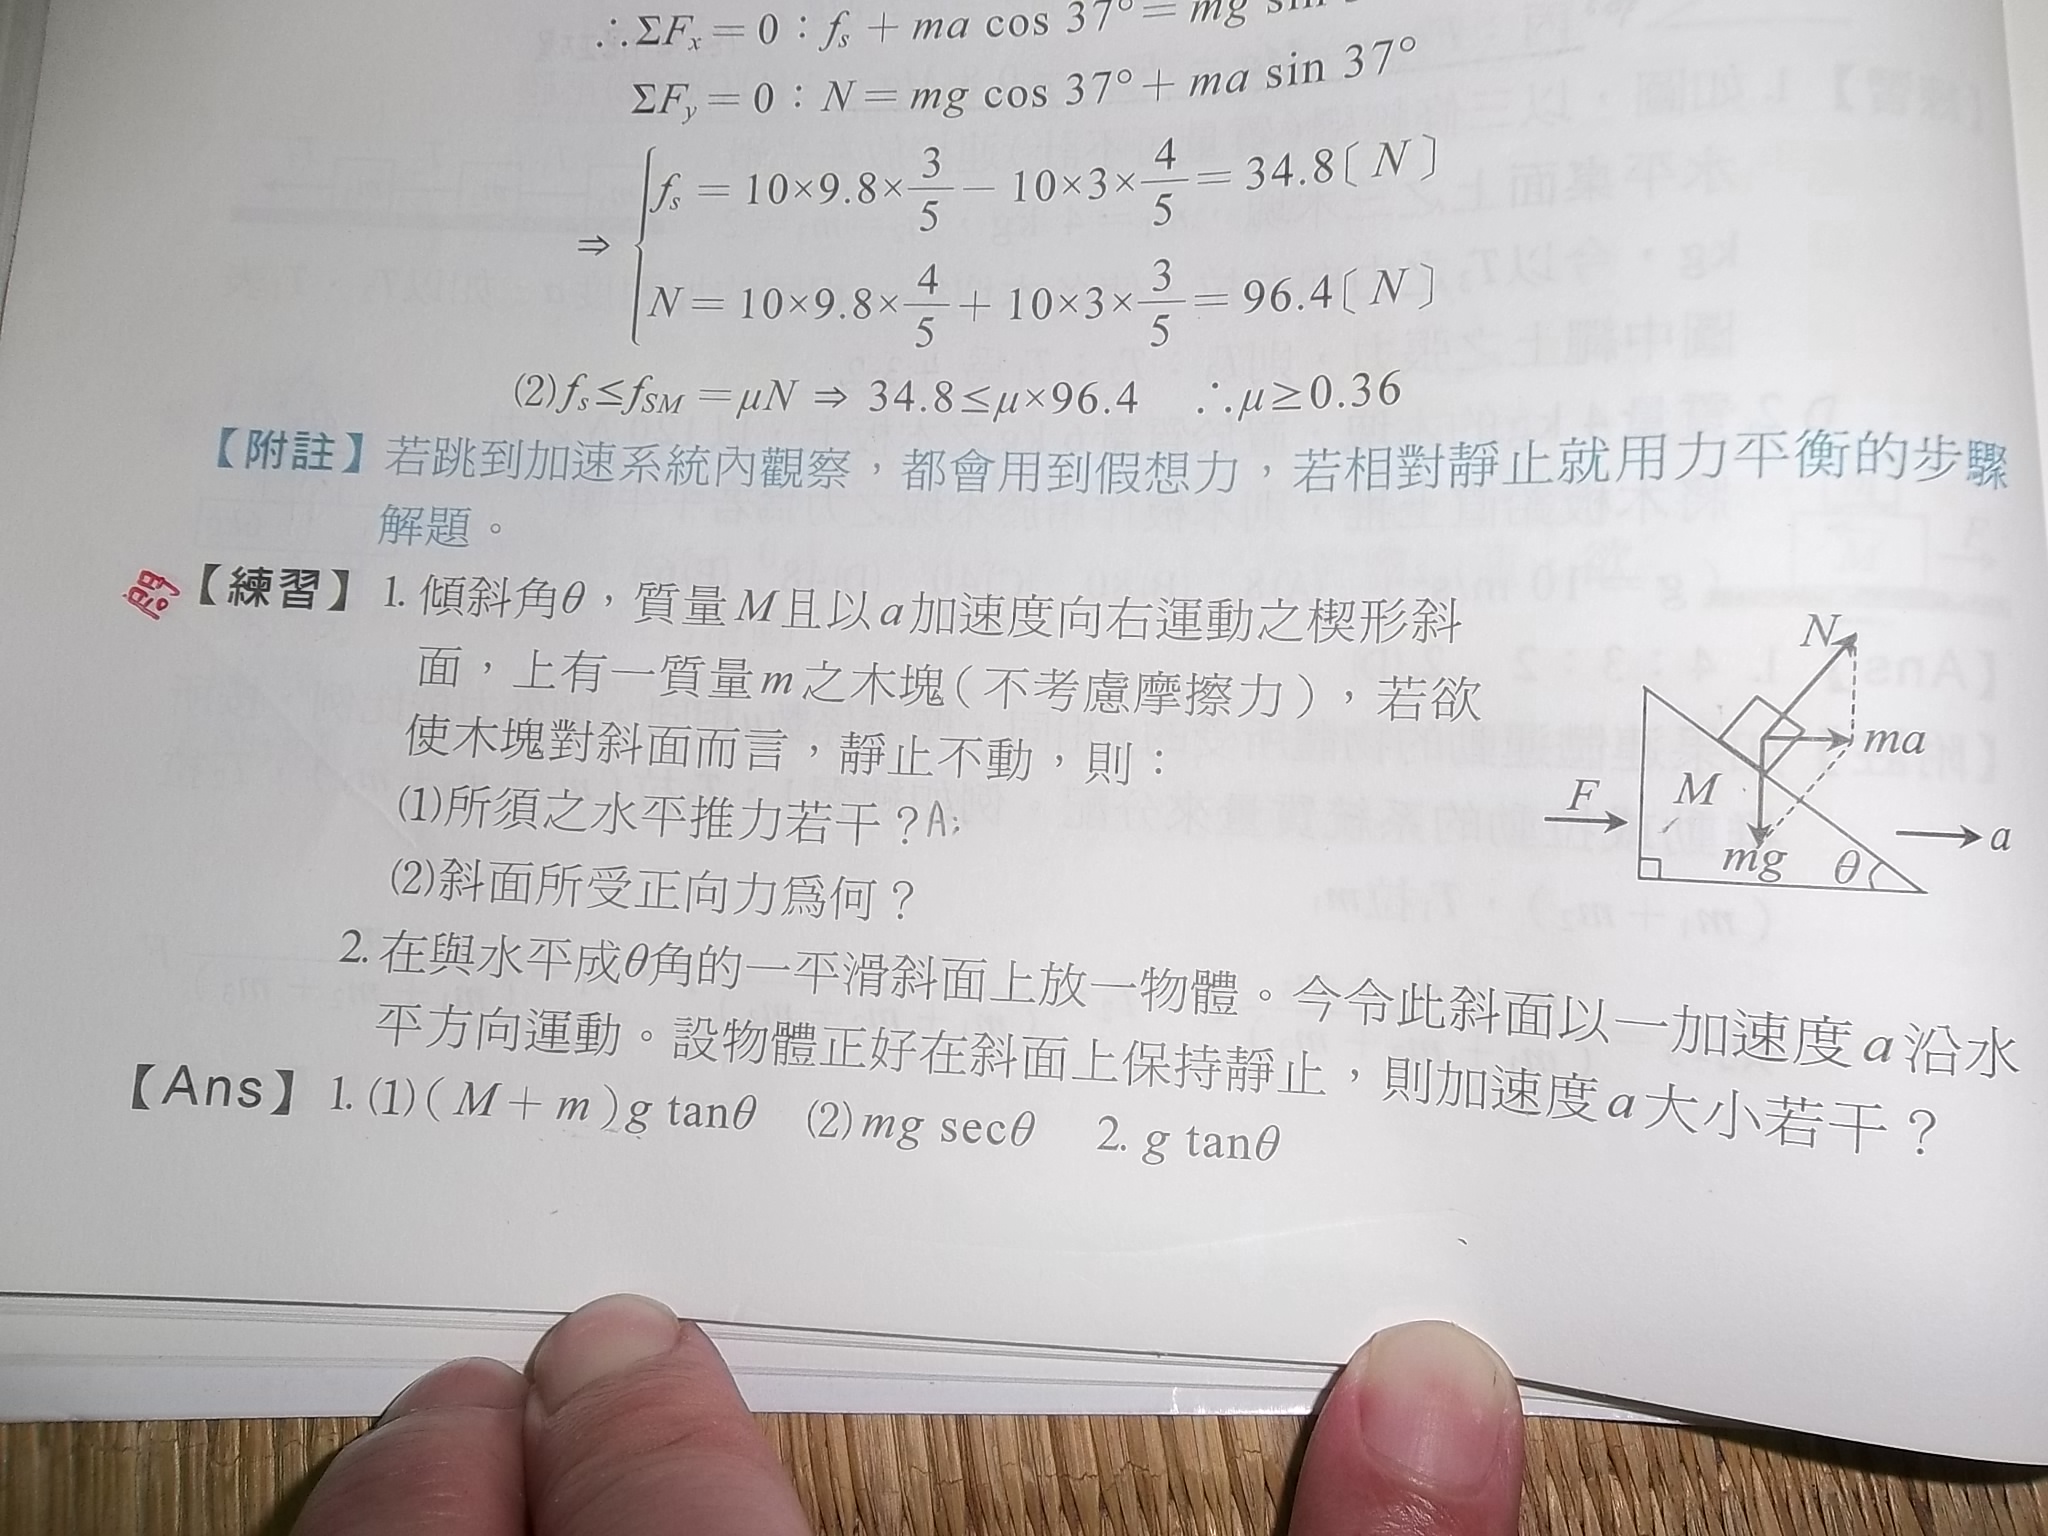 ∴ΣFx = 0：fs + ma cos 37° = mg sin
ΣFy = 0：N = mg cos 37° + ma sin 37°
⇒ { fs = 10×9.8×3/5 − 10×3×4/5 = 34.8〔N〕
N = 10×9.8×4/5 + 10×3×3/5 = 96.4〔N〕
(2) fs ≤ fSM = μN ⇒ 34.8 ≤ μ×96.4 ∴μ ≥ 0.36
【附註】若跳到加速系統內觀察，都會用到假想力，若相對靜止就用力平衡的步驟
解題。
問【練習】1. 傾斜角θ，質量M且以a加速度向右運動之楔形斜
面，上有一質量m之木塊（不考慮摩擦力），若欲
使木塊對斜面而言，靜止不動，則：
(1)所須之水平推力若干？A:
(2)斜面所受正向力爲何？
N
ma
M
F
mg
θ
a
2. 在與水平成θ角的一平滑斜面上放一物體。今令此斜面以一加速度a沿水
平方向運動。設物體正好在斜面上保持靜止，則加速度a大小若干？
【Ans】1. (1)(M + m)g tanθ (2) mg secθ 2. g tanθ